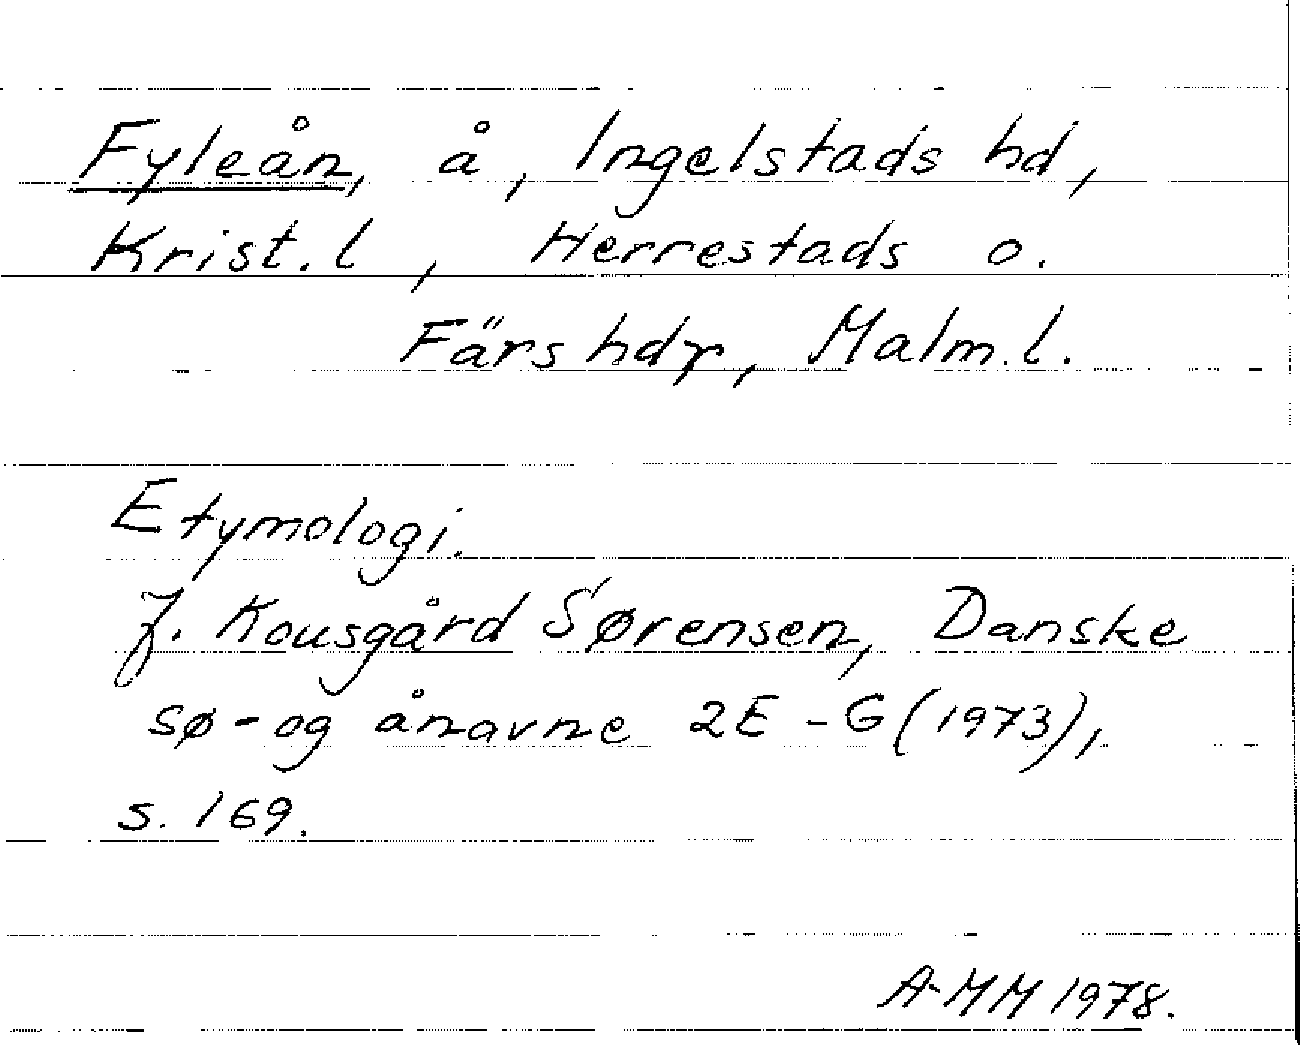 Fyleån, å, Ingelstads hd,
Krist. l, Herrestads o.
Färs hdr, Malm. l.
Etymologi.
J. Kousgård Sørensen, Danske
sø- og ånavne 2E-G (1973),
s. 169.
A-MM 1978.